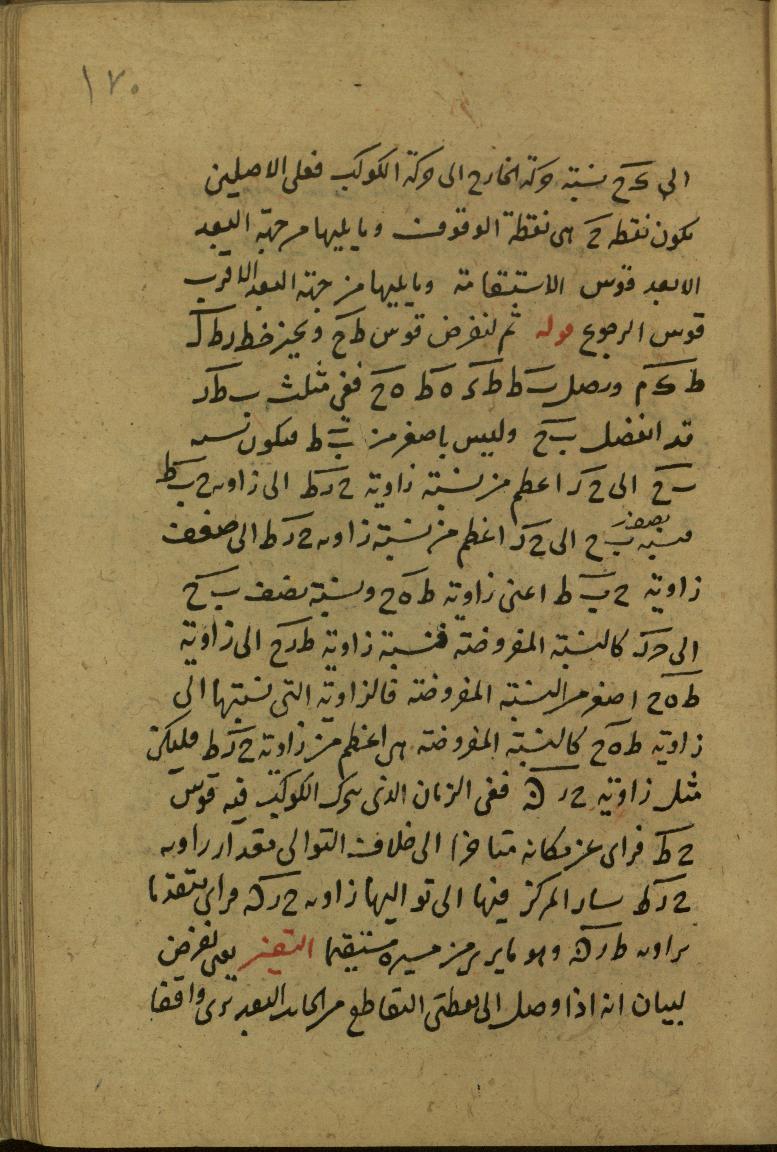 ١٧٠
الى ک‍ح نسبة حركة الخارج الى حركة الكوكب فعلى الاصلين
يكون نقطة ح هى نقطة الوقوف وما يليها من جهة البعد
الابعد قوس الاستقامة وما يليها من جهة البعد الاقرب
قوس الرجوع قوله ثم لنفرض قوس ط‍ح ونخرج خط ر ط ک
ط ک م ونصل ب ط ط ک ه ط ه ح ففى مثلث ب ط ر
قد انفصل ب ح وليس باصغر من ب ط فيكون نسبة
ب ح الى ح ر اعظم من نسبة زاوية ح ر ط الى زاوية ح ب ط
فنسبة نصف ب ح الى ح ر اعظم من نسبة زاوية ح ر ط الى ضعف
زاوية ح ب ط اعنى زاوية ط ه ح ونسبة نصف ب ح
الى ح ر كالنسبة المفروضة فنسبة زاوية ط ر ح الى زاوية
ط ه ح اصغر من النسبة المفروضة فالزاوية التى نسبتها الى
زاوية ط ه ح كالنسبة المفروضة هى اعظم من زاوية ح ر ط فليكن
مثل زاوية ح ر ن ففى الزمان الذى يتحرك الكوكب فيه قوس
ح ط فراى عن مكانه متاخرا الى خلاف التوالى مقدار زاوية
ح ر ط سار المركز فيها الى تواليها زاوية ح ر ن فراى متقدما
بزاوية ط ر ن وهو ما يرى من مسيره مستقيما التفسير يعنى نفرض
لبيان انه اذا وصل الى نقطتى التقاطع من البعد يرى واقفا